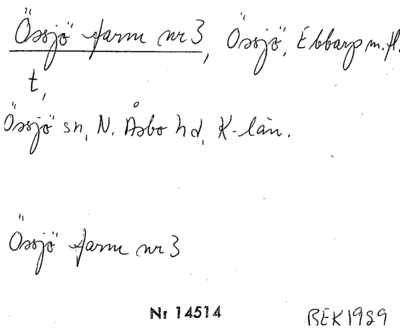 Össjö farm nr 3, Össjö, Ebbarp m.fl.
t,
Össjö sn, N. Åsbo hd, K-län.
Össjö farm nr 3
Nr 14514
BEK1989